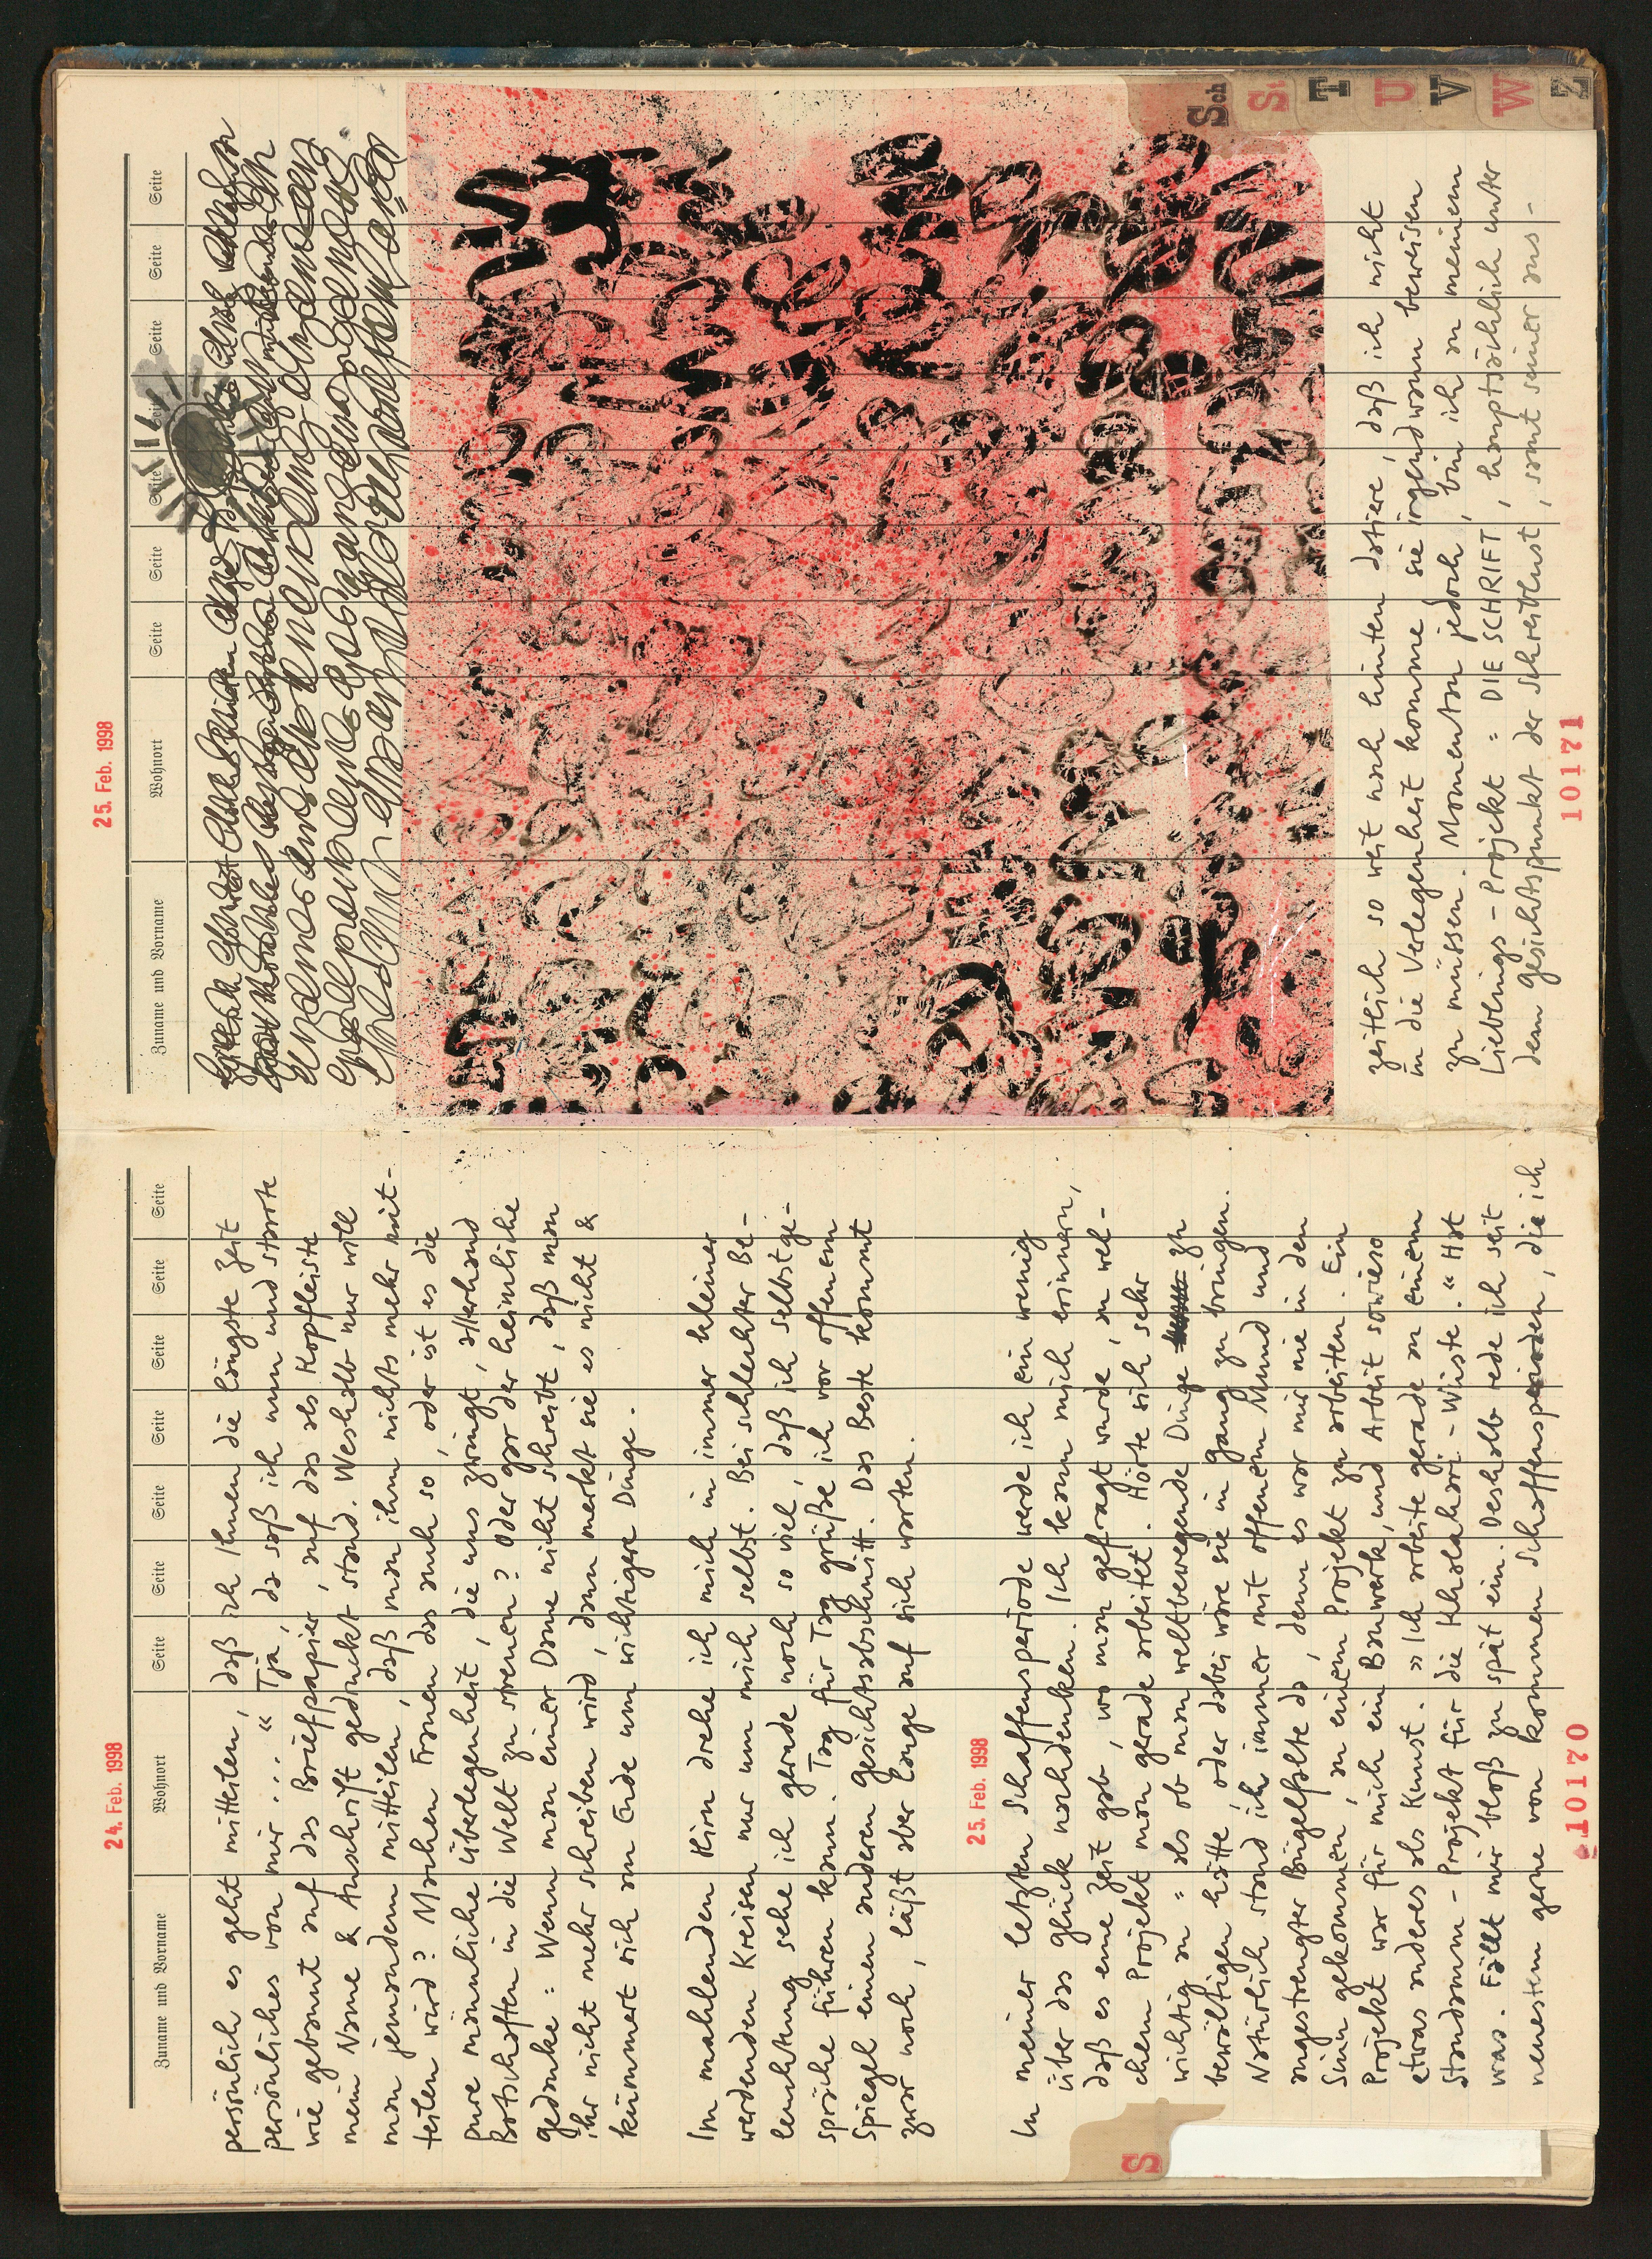 24. Feb. 1998
Zuname und Vorname Wohnort Seite Seite Seite Seite Seite Seite Seite
persönlich es geht mitteilen, daß ich Ihnen die längste Zeit
persönliches von mir ... “ Tja, da saß ich nun und starrte
wie gebannt auf das Briefpapier, auf das als Kopfleiste
mein Name & Anschrift gedruckt stand. Weshalb nur will
man jemandem mitteilen, daß man ihm nichts mehr mit-
teilen wird? Machen Frauen das auch so, oder ist es die
pure männliche Überlegenheit, die uns zwingt, allerhand
Botschaften in die Welt zu streuen? Oder gar der heimliche
Gedanke: Wenn man einer Dame nicht schreibt, daß man
ihr nicht mehr schreiben wird, dann merkt sie es nicht &
kümmert sich am Ende um wichtigere Dinge.
Im mahlenden Hirn drehe ich mich in immer kleiner
werdenden Kreisen nur um mich selbst. Bei schlechter Be-
leuchtung sehe ich gerade noch so viel, daß ich Selbstge-
spräche führen kann. Tag für Tag grüße ich vor offenem
Spiegel einen anderen Gesichtsabschnitt. Das Beste kommt
zwar noch, läßt aber lange auf sich warten.
25. Feb. 1998
In meiner letzten Schaffensperiode werde ich ein wenig
über das Glück nachdenken. Ich kann mich erinnern,
daß es eine Zeit gab, wo man gefragt wurde, an wel-
chem Projekt man gerade arbeitet. Hörte sich sehr
wichtig an = als ob man weltbewegende Dinge zu
bewältigen hätte, oder dabei wäre sie in Gang zu bringen.
Natürlich stand ich immer mit offenem Mund und
angestrengter Bügelfalte da, denn es war mir nie in den
Sinn gekommen, an einem Projekt zu arbeiten. Ein
Projekt war für mich ein Bauwerk, und Arbeit sowieso
etwas anderes als Kunst. » Ich arbeite gerade an einem
Staudamm-Projekt für die Khalahari-Wüste. “ Hat
was. Fällt mir bloß zu spät ein. Deshalb rede ich seit
neuestem gerne von kommen Schaffensperioden, die ich
10170
S
25. Feb. 1998
Zuname und Vorname Wohnort Seite Seite Seite Seite Seite Seite Seite
zeitlich so weit nach hinten datiere, daß ich nicht
in die Verlegenheit komme, sie irgendwann beweisen
zu müssen. Momentan jedoch, bin ich an meinem
Lieblings-Projekt = DIE SCHRIFT, hauptsächlich unter
dem Gesichtspunkt der Schreiblust, samt seiner aus-
10171
Sch
St
T
U
V
W
Z